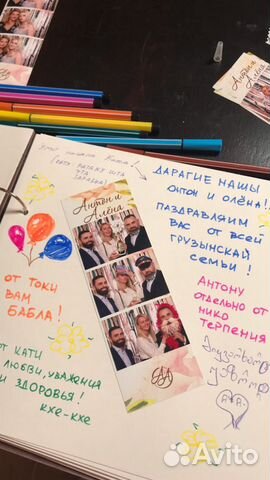 Антон и
Алёна
ДАРАГИЕ НАШЫ
ОНТОН И ОЛЁНА!
ПАЗДРАВЛЯИМ
ВАС ОТ ВСЕЙ
ГРУЗЫНСКАЙ
СЕМЬИ!
Антон и
Алёна
ОТ ТОКИ
ВАМ
БАБЛА!
АНТОНУ
ОТДЕЛЬНО ОТ
НИКО
ТЕРПЕНИЯ
ОТ КАТИ
ЛЮБВИ, УВАЖЕНИЯ
И ЗДОРОВЬЯ!
КХЕ-КХЕ
А+А
Avito